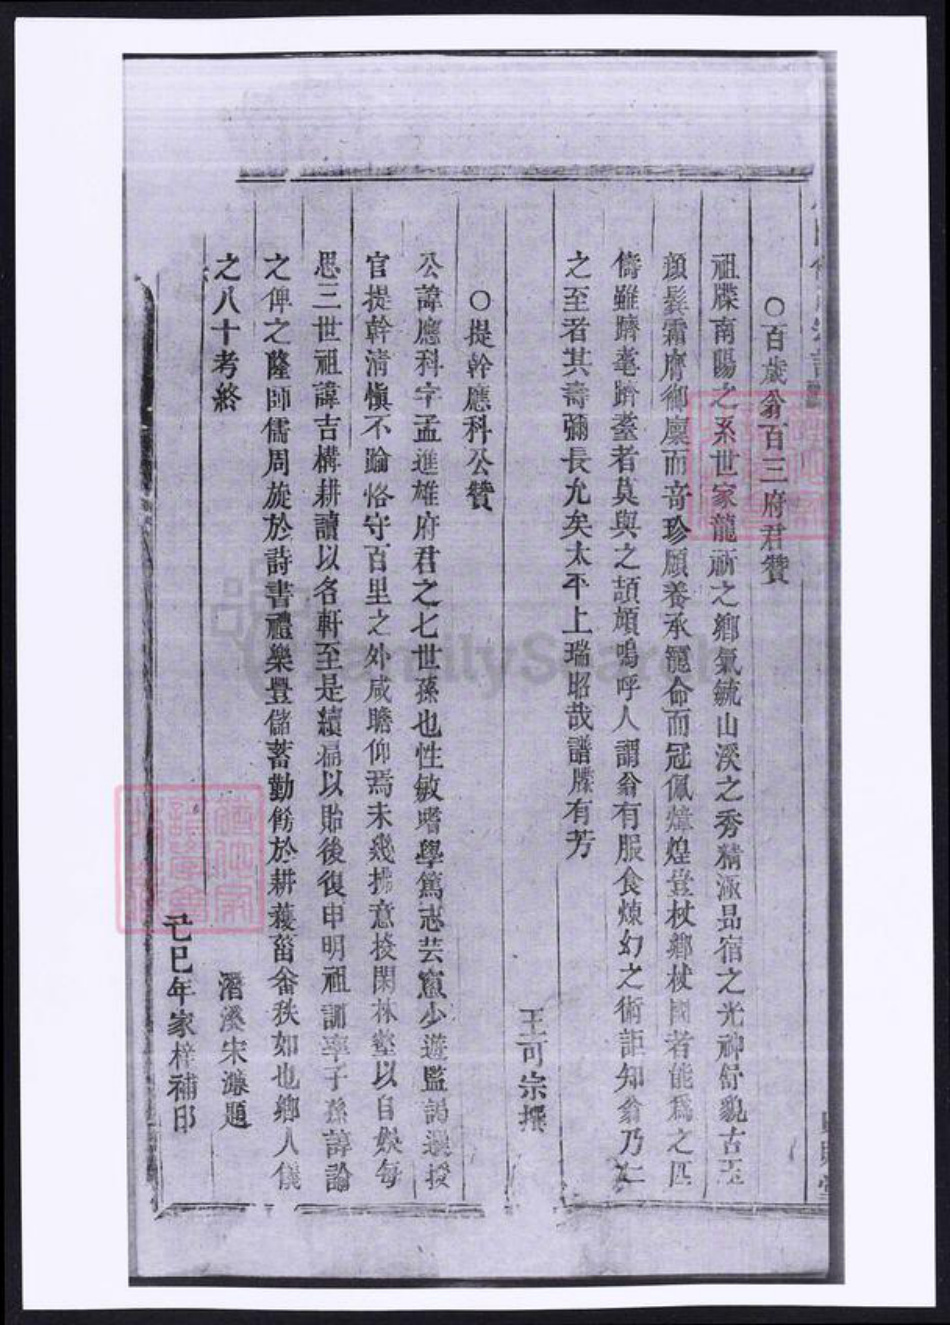 〇百歲翁百三府君贊
祖牒南陽之系世家龍湖之鄉氣毓山溪之秀精涵昂宿之光神舒貌古玉
顏鬂霜膚御廩而竒珍願養承寵命而冠佩煒煌豈杖鄉杖國者能爲之匹
儔雖躋耄躋耋者莫與之頡頏嗚呼人謂翁有服食煉幻之術詎知翁乃仁
之至者其壽彌長允矣太平上瑞昭哉譜牒有芳
王可宗撰
〇提幹應科公贊
公諱應科字孟進雄府君之七世孫也性敏嗜學篤志芸窻少遊監謁選授
官提幹清愼不踰恪守百里之外咸瞻仰焉未幾拂意投閑林壑以自娛每
思三世祖諱吉構耕讀以名軒至是續扁以貽後復申明祖訓率子孫諄諭
之俾之隆師儒周旋於詩書禮樂豐儲蓄勤餙於耕穫菑畬秩如也鄉人儀
之八十考終
潛溪宋濂題
己巳年家梓補印
FamilySearch